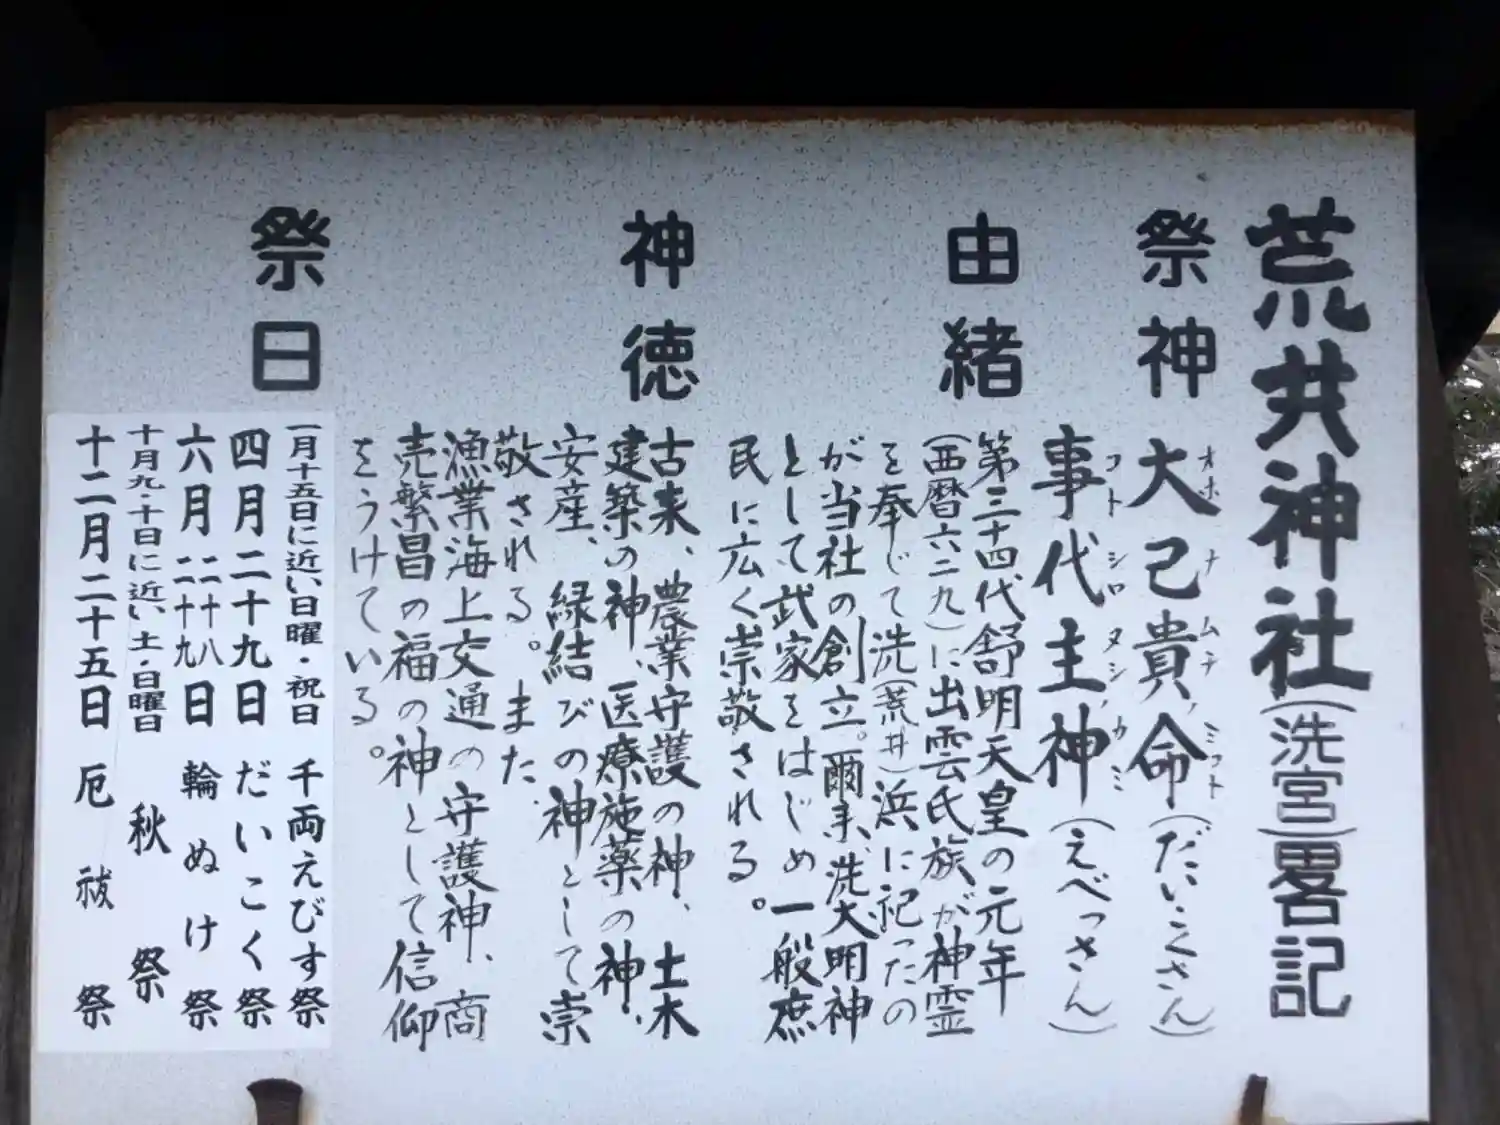 荒井神社(洗宮)畧記
祭神
大己貴命(だいこくさん)
オホ ナ ムチ ミコト
事代主神(えべっさん)
コト シロ ヌシ カミ
由緒
第三十四代舒明天皇の元年
(西暦六二九)に出雲氏族が神霊
を奉じて洗(荒井)浜に祀ったの
が当社の創立。爾来、洗大明神
として武家をはじめ一般庶
民に広く崇敬される。
神徳
古来、農業守護の神、土木
建築の神、医療施薬の神、
安産、縁結びの神として崇
敬される。また
漁業海上交通の守護神、商
売繁昌の福の神として信仰
をうけている。
祭日
一月十五日に近い日曜・祝日 千両えびす祭
四月二十九日 だいこく祭
六月二十八二十九日 輪ぬけ祭
十月九・十日に近い土・日曜日 秋祭
十二月二十五日 厄祓祭